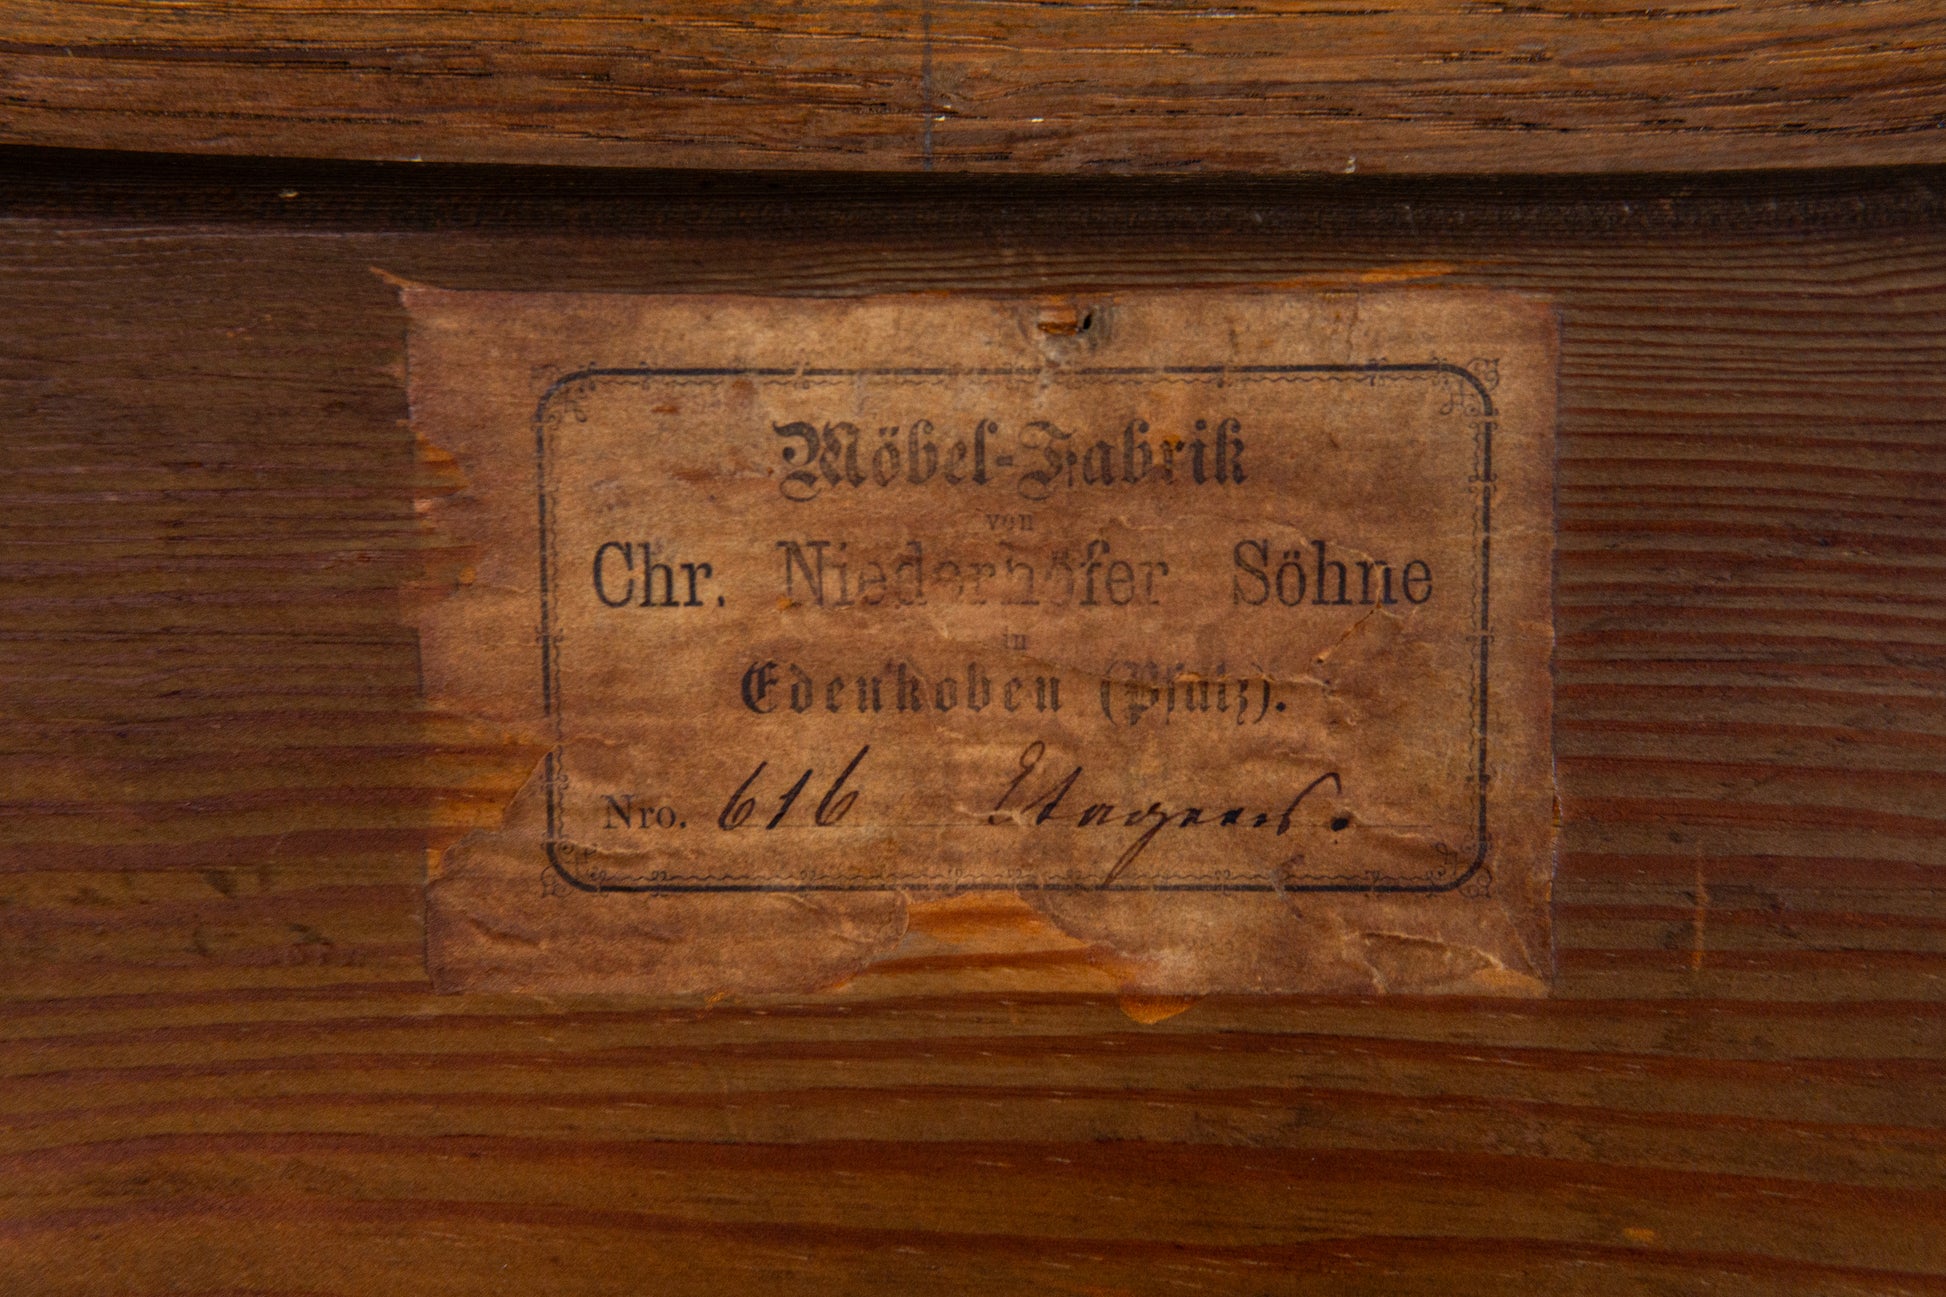 Möbel-Fabrik
von
Chr. Niederhöfer Söhne
in
Edenkoben (Pfalz).
Nro. 616 Etageres.